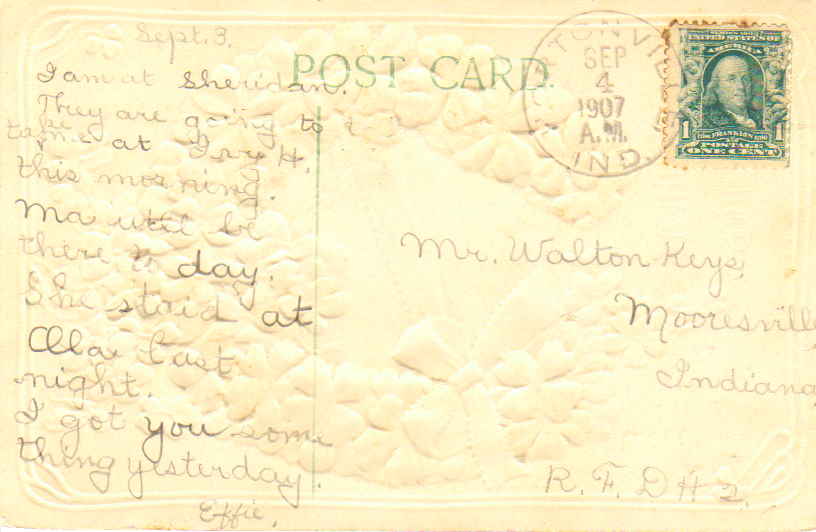 Sept. 3.
I am at Sheridan.
They are going to
me at Ivy H.
this morning.
Ma will be
there to day.
She staid at
last
night.
I got you some
thing yesterday.
Effie.
POST CARD.
SEP
4
1907
A.M.
IND.
SERIES 1902
UNITED STATES OF
AMERICA
FRANKLIN
1 POSTAGE 1
ONE CENT
Mr. Walton Keys,
Mooresville
Indiana
R. F. D # 2.